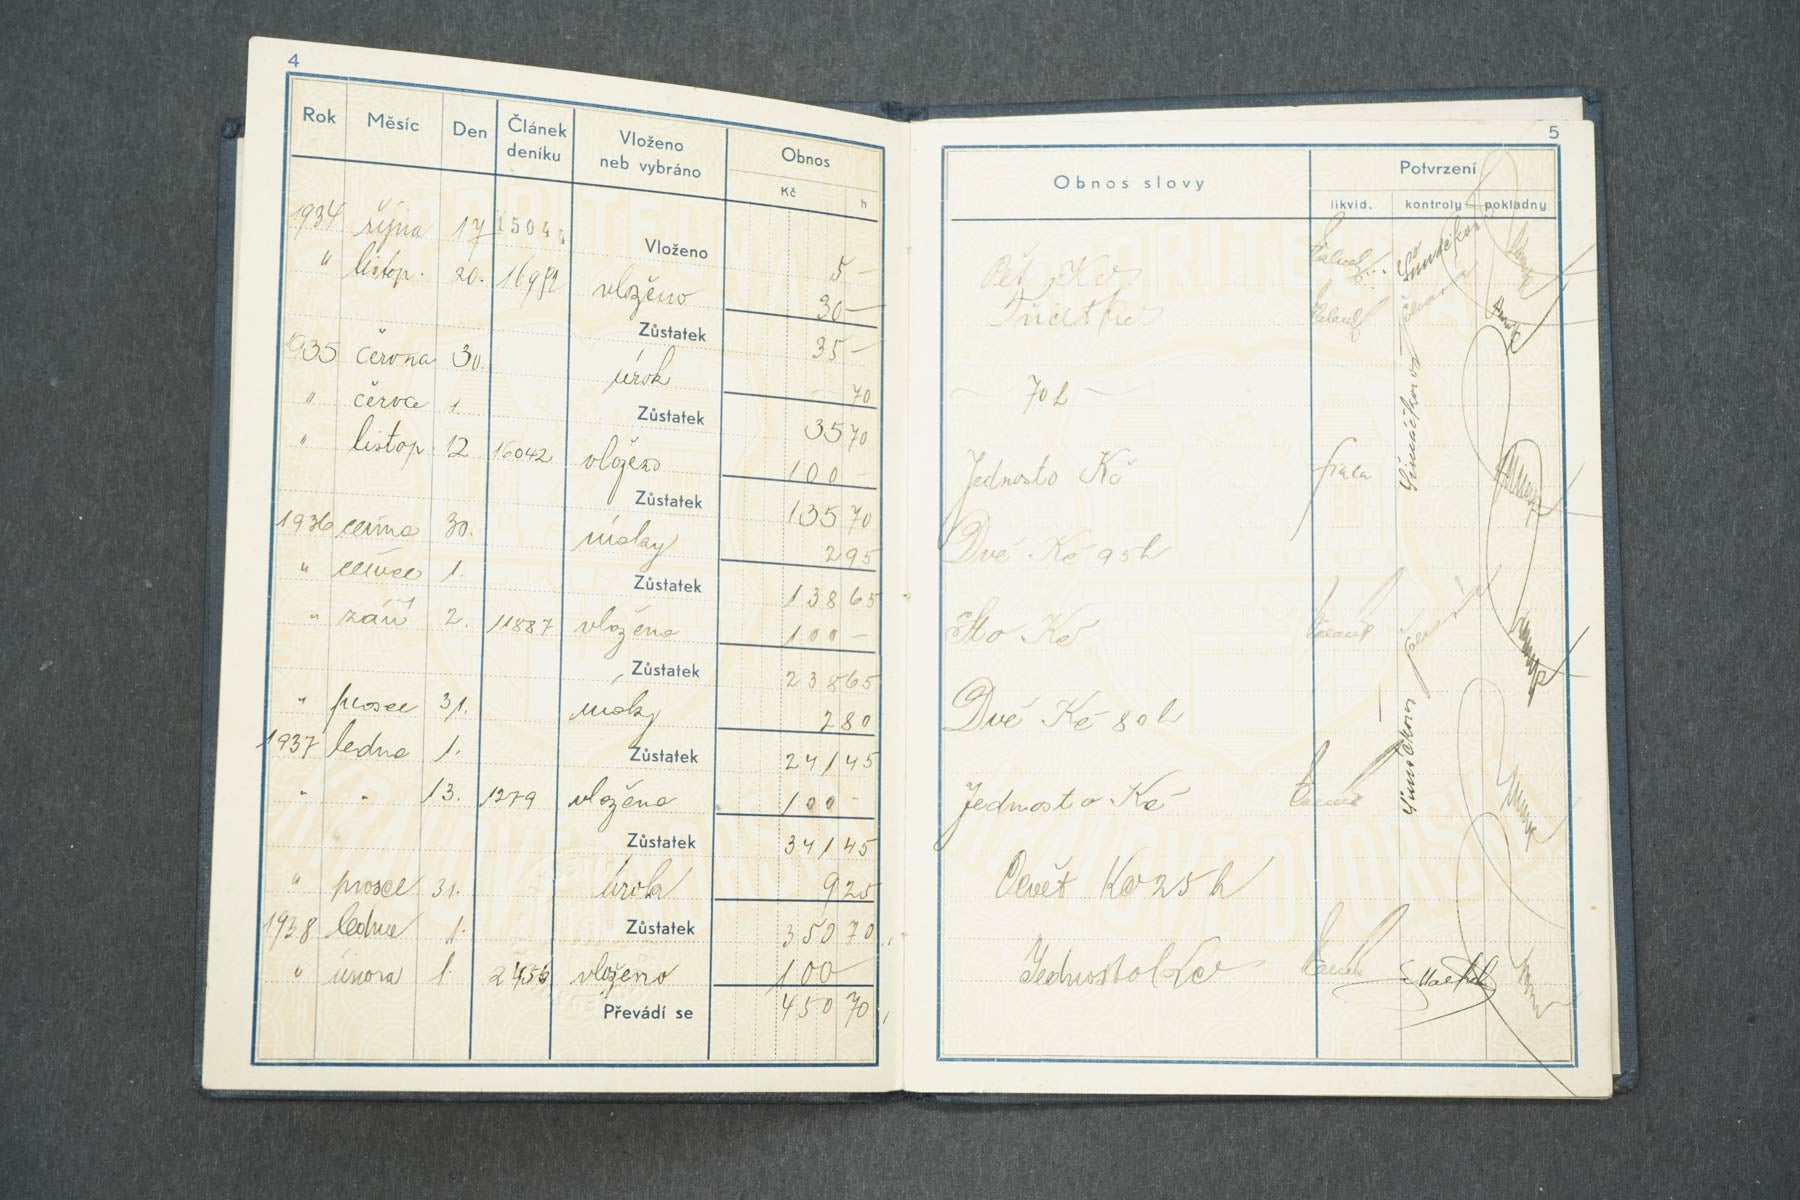 4
Rok Měsíc Den Článek deníku Vloženo neb vybráno Obnos
Kč h
1934 října 17 1504
Vloženo 5 —
" listop. 20. vloženo 30 —
Zůstatek 35 —
1935 června 30. úrok — 70
" července 1. Zůstatek 35 70
" listop 12 16042 vloženo 100 —
Zůstatek 135 70
1936 června 30. úroky 2 95
" července 1. Zůstatek 138 65
" září 2. 11887 vloženo 100 —
Zůstatek 238 65
" prosce 31. úroky 2 80
1937 ledna 1. Zůstatek 241 45
" " 13. 1279 vloženo 100 —
Zůstatek 341 45
" prosce 31. úroky 9 25
1938 ledna 1. Zůstatek 350 70
" února 1. 2456 vloženo 100 —
Převádí se 450 70
5
Obnos slovy Potvrzení
likvid. kontroly pokladny
Pět Kč
Třicet Kč
— 70 h —
Jednosto Kč Fiala
Dvě Kč 95 h
Sto Kč
Dvě Kč 80 h
Jednosto Kč
Devět Kč 25 h
Jednosto Kč